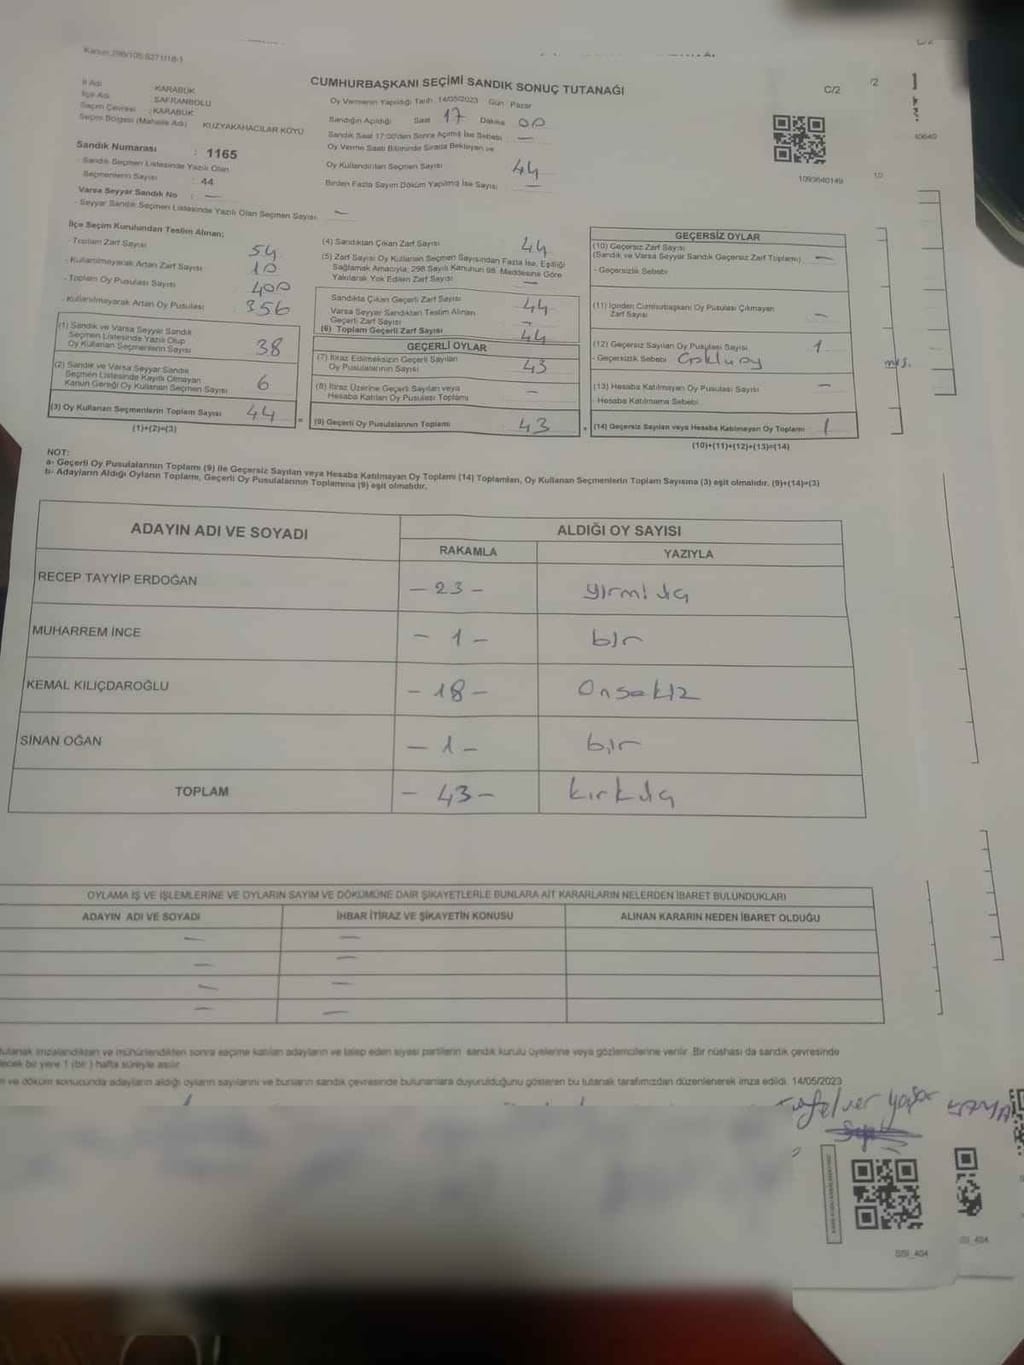 Kanun_298/105-6271/18-1
CUMHURBAŞKANI SEÇİMİ SANDIK SONUÇ TUTANAĞI
C/2
/2
İl Adı : KARABÜK
İlçe Adı : SAFRANBOLU
Seçim Çevresi : KARABÜK
Seçim Bölgesi (Mahalle Adı) : KUZYAKAHACILAR KÖYÜ
Sandık Numarası : 1165
Sandık Seçmen Listesinde Yazılı Olan
Seçmenlerin Sayısı : 44
Varsa Seyyar Sandık No : —
- Seyyar Sandık Seçmen Listesinde Yazılı Olan Seçmen Sayısı: —
Oy Vermenin Yapıldığı Tarih 14/05/2023 Gün: Pazar
Sandığın Açıldığı Saat 17 Dakika 00
Sandık Saat 17:00'den Sonra Açılmış İse Sebebi —
Oy Verme Saati Bitiminde Sırada Bekleyen ve
Oy Kullandırılan Seçmen Sayısı 44
Birden Fazla Sayım Döküm Yapılmış İse Sayısı —
1093640149
40640
İlçe Seçim Kurulundan Teslim Alınan:
- Toplam Zarf Sayısı 54
- Kullanılmayarak Artan Zarf Sayısı 10
- Toplam Oy Pusulası Sayısı 400
- Kullanılmayarak Artan Oy Pusulası 356
(1) Sandık ve Varsa Seyyar Sandık
Seçmen Listesinde Yazılı Olup
Oy Kullanan Seçmenlerin Sayısı 38
(2) Sandık ve Varsa Seyyar Sandık
Seçmen Listesinde Kayıtlı Olmayan
Kanun Gereği Oy Kullanan Seçmen Sayısı 6
(3) Oy Kullanan Seçmenlerin Toplam Sayısı 44
(1)+(2)=(3)
(4) Sandıktan Çıkan Zarf Sayısı 44
(5) Zarf Sayısı Oy Kullanan Seçmen Sayısından Fazla İse, Eşitliği
Sağlamak Amacıyla, 298 Sayılı Kanunun 98. Maddesine Göre
Yakılarak Yok Edilen Zarf Sayısı —
Sandıkta Çıkan Geçerli Zarf Sayısı 44
Varsa Seyyar Sandıktan Teslim Alınan
Geçerli Zarf Sayısı —
(6) Toplam Geçerli Zarf Sayısı 44
GEÇERLİ OYLAR
(7) İtiraz Edilmeksizin Geçerli Sayılan
Oy Pusulalarının Sayısı 43
(8) İtiraz Üzerine Geçerli Sayılan veya
Hesaba Katılan Oy Pusulası Toplamı —
(9) Geçerli Oy Pusulalarının Toplamı 43
GEÇERSİZ OYLAR
(10) Geçersiz Zarf Sayısı
(Sandık ve Varsa Seyyar Sandık Geçersiz Zarf Toplamı) —
- Geçersizlik Sebebi
(11) İçinden Cumhurbaşkanı Oy Pusulası Çıkmayan
Zarf Sayısı —
(12) Geçersiz Sayılan Oy Pusulası Sayısı 1
- Geçersizlik Sebebi
(13) Hesaba Katılmayan Oy Pusulası Sayısı —
- Hesaba Katılmama Sebebi
(14) Geçersiz Sayılan veya Hesaba Katılmayan Oy Toplamı 1
(10)+(11)+(12)+(13)=(14)
NOT:
a- Geçerli Oy Pusulalarının Toplamı (9) ile Geçersiz Sayılan veya Hesaba Katılmayan Oy Toplamı (14) Toplamları, Oy Kullanan Seçmenlerin Toplam Sayısına (3) eşit olmalıdır. (9)+(14)=(3)
b- Adayların Aldığı Oyların Toplamı, Geçerli Oy Pusulalarının Toplamına (9) eşit olmalıdır.
ADAYIN ADI VE SOYADI
ALDIĞI OY SAYISI
RAKAMLA YAZIYLA
RECEP TAYYİP ERDOĞAN — 23 — yirmi üç
MUHARREM İNCE — 1 — bir
KEMAL KILIÇDAROĞLU — 18 — Onsekiz
SİNAN OĞAN — 1 — bir
TOPLAM — 43 — kırküç
OYLAMA İŞ VE İŞLEMLERİNE VE OYLARIN SAYIM VE DÖKÜMÜNE DAİR ŞİKAYETLERLE BUNLARA AİT KARARLARIN NELERDEN İBARET BULUNDUKLARI
ADAYIN ADI VE SOYADI İHBAR İTİRAZ VE ŞİKAYETİN KONUSU ALINAN KARARIN NEDEN İBARET OLDUĞU
— —
— —
— —
— —
tutanak imzalandıktan ve mühürlendikten sonra seçime katılan adayların ve talep eden siyasi partilerin sandık kurulu üyelerine veya gözlemcilerine verilir. Bir nüshası da sandık çevresinde
ecek bir yere 1 (bir ) hafta süreyle asılır.
m ve döküm sonucunda adayların aldığı oyların sayılarını ve bunların sandık çevresinde bulunanlara duyurulduğunu gösteren bu tutanak tarafımızdan düzenlenerek imza edildi. 14/05/2023
yaşar
SSI_404
SSI_404